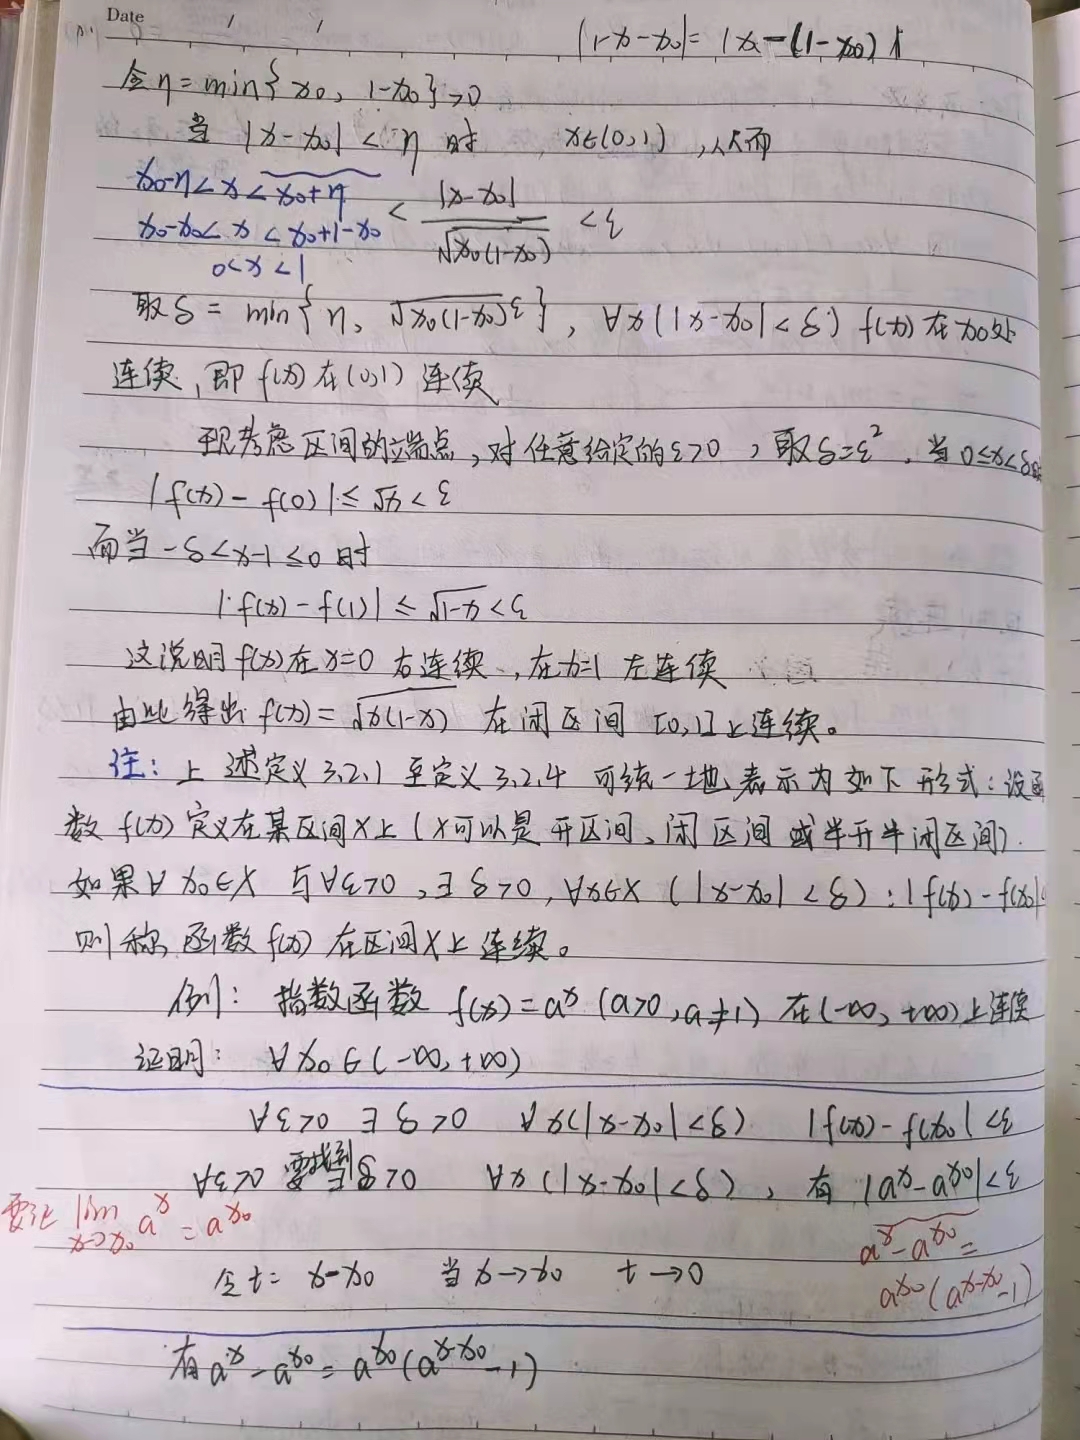 Date
|1-x-x₀|= |x-(1-x₀)|
令η=min{x₀, 1-x₀}>0
当 |x-x₀| < η 时 , x∈(0,1) ,从而
x₀-η<x<x₀+η < |x-x₀|/√x₀(1-x₀) <ε
x₀-x₀<x<x₀+1-x₀
0<x<1
取δ = min{η, √x₀(1-x₀) ε}, ∀x(|x-x₀|<δ) f(x)在x₀处
连续,即f(x)在(0,1) 连续
现考虑区间的端点,对任意给定的ε>0 ,取δ=ε², 当0≤x<δ时
|f(x)-f(0)|≤√x<ε
而当-δ<x-1≤0时
|f(x)-f(1)|≤√1-x<ε
这说明f(x)在x=0 右连续,在x=1 左连续
由此得出f(x)=√x(1-x) 在闭区间 [0,1]上连续。
注: 上述定义3.2.1 至定义3.2.4 可统一地表示为如下形式:设函
数f(x)定义在某区间X上(X可以是开区间、闭区间或半开半闭区间).
如果∀x₀∈X 与∀ε>0 ,∃δ>0,∀x∈X (|x-x₀|<δ):|f(x)-f(x₀)|<
则称函数f(x)在区间X上连续。
例: 指数函数 f(x)=aˣ (a>0,a≠1) 在(-∞,+∞)上连续
证明: ∀x₀∈(-∞,+∞)
∀ε>0 ∃δ>0 ∀x(|x-x₀|<δ) |f(x)-f(x₀)|<ε
∀ε>0 要找到δ>0 ∀x(|x-x₀|<δ), 有|aˣ-aˣ⁰|<ε
要证 lim x→x₀ aˣ = aˣ⁰
aˣ-aˣ⁰=
aˣ⁰(aˣ⁻ˣ⁰-1)
令t= x-x₀ 当x→x₀ t→0
有aˣ-aˣ⁰=aˣ⁰(aˣ⁻ˣ⁰-1)